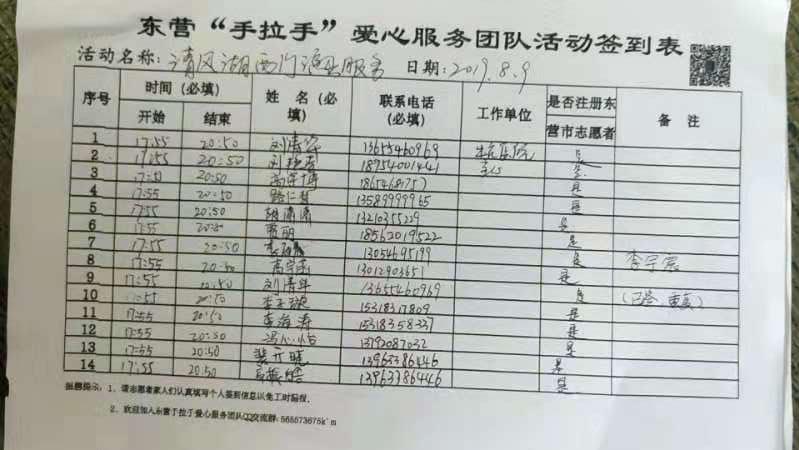 东营“手拉手”爱心服务团队活动签到表
活动名称：清风湖西门 服务 日期：2019.8.9
序号 时间（必填） 姓 名（必填） 联系电话（必填） 工作单位 是否注册东营市志愿者 备 注
开始 结束
1 17:55 20:50 刘清 13655460969 是
2 17:55 20:50 刘 18954001441 是
3 20:50 高宇博 是
4 17:55 20:50 路仁 13589999965 是
5 17:55 20:50 胡潇潇 13210355229 是
6 17:55 贾丽 18562019522 是
7 17:55 20:50 李 13054695199 是 李宇宸
8 17:55 高宇 13012903651 是
9 17:55 刘清年 13655460969 是 重复）
10 李 15318317809 是
11 17:55 20:50 李海涛 15318358337 是
12 17:55 20:50 冯心怡 13792087032 是
13 17:55 20:50 裴亓晓 13963386446 是
14 17:55 20:50 13963386446 是
温馨提示：1、请志愿者家人们认真填写个人签到信息以免工时漏报。
2、欢迎加入东营手拉手爱心服务团队QQ交流群:565573675